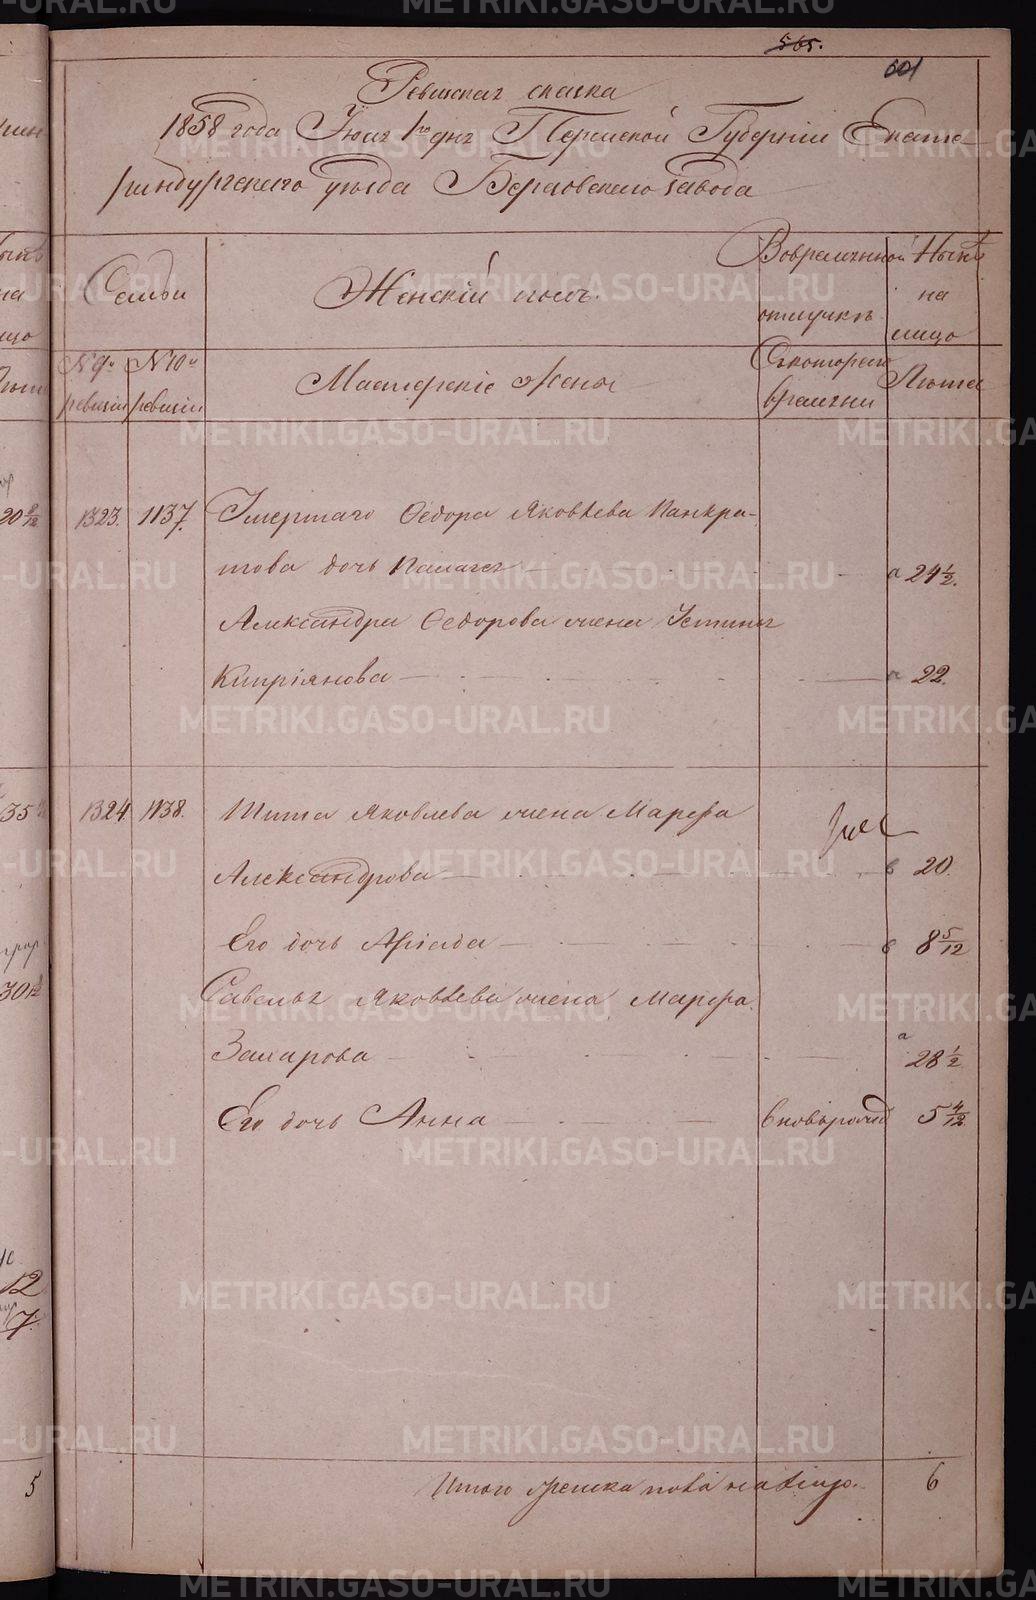 565.
601
Ревизская сказка
1858 года Июня 1го дня Пермской Губернии Екате
ринбургского уезда Березовского завода
Семьи
Женскій полъ.
Вовременной
отлучкѣ
Нынѣ
на
лицо
№ 9й
ревизіи
№ 10й
ревизіи
Мастерскіе жены
Скотораго
времени
Лѣта
1323. 1137. Умершаго Ѳедора Яковлева Панкра-
това дочь Палагея 24 1/2.
Александра Ѳедорова жена Устинья
Кипріянова 22.
1324. 1138. Тита Яковлева жена Марѳа
Александрова 20.
Его дочь 8 5/12
Савелья Яковлева жена Марѳа
Захарова 28 1/2
Его дочь Анна вновьрожд 5 4/12.
Итого женска пола налицо. 6
20 8/12
35
30
12
7.
5
METRIKI.GASO-URAL.RU